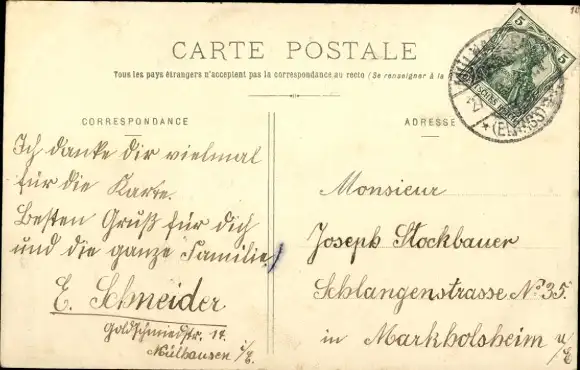 CARTE POSTALE
Tous les pays étrangers n'acceptent pas la correspondance au recto (Se renseigner à la
CORRESPONDANCE
Ich danke dir vielmal
für die Karte.
Besten Gruß für dich
und die ganze Familie.
E. Schneider
Goldschmiedstr. 17.
Mülhausen i/E.
ADRESSE
Monsieur
Joseph Stockbauer
Schlangenstrasse No 35.
in Markholsheim u/E
5
5
(ELSASS)